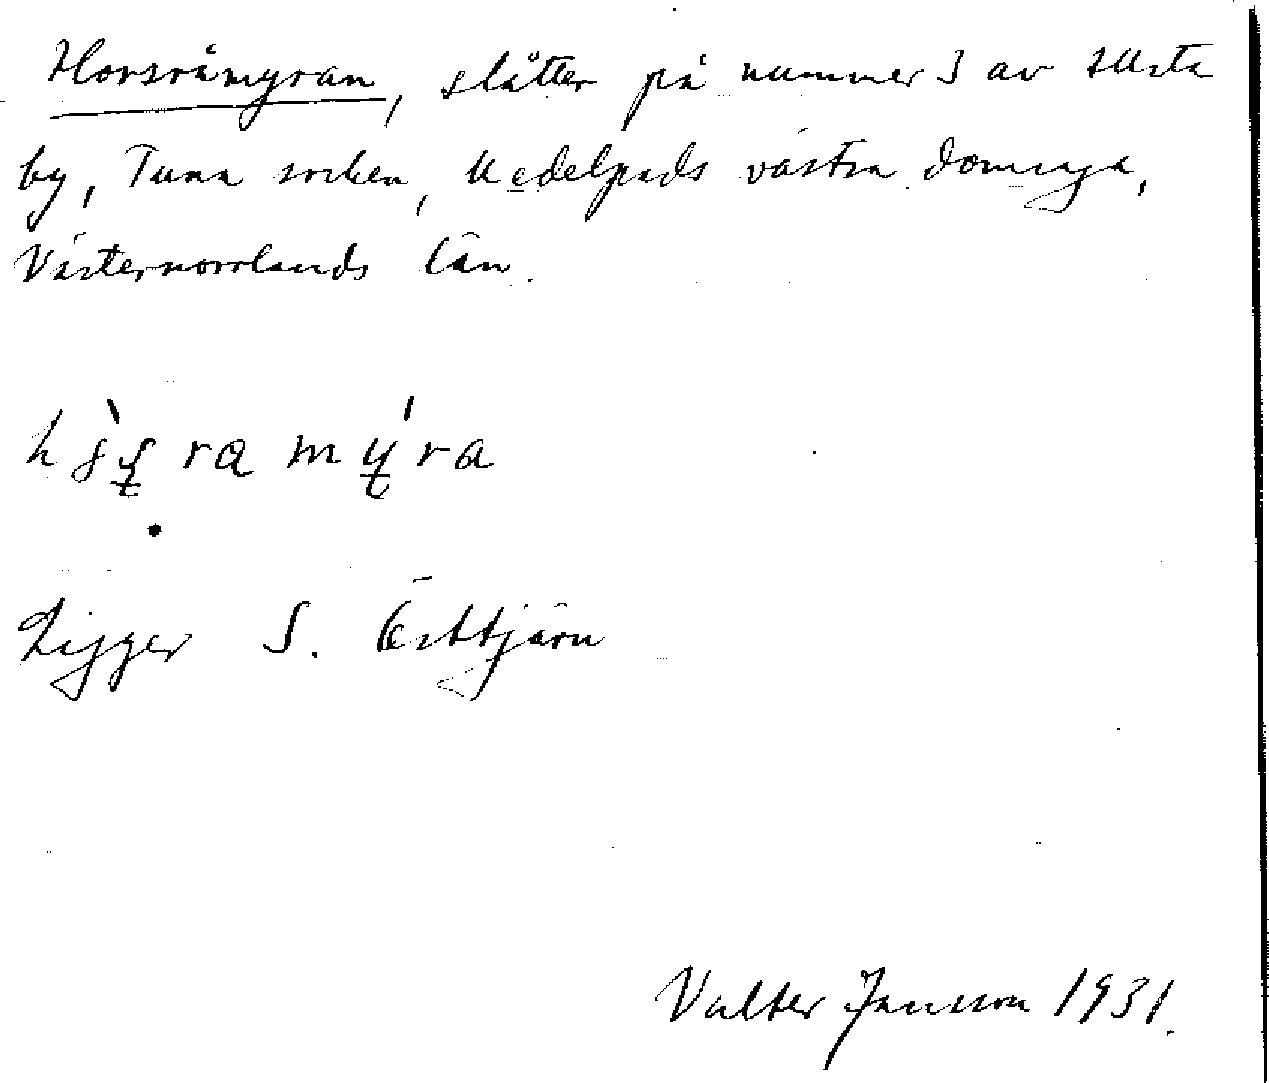 Horsråmyran, slåtter på nummer 3 av
by, Tuna socken, Medelpads västra domsaga,
Västernorrlands län.
ra my̱ra
Ligger S. Östtjärn
Valter Jansson 1931.